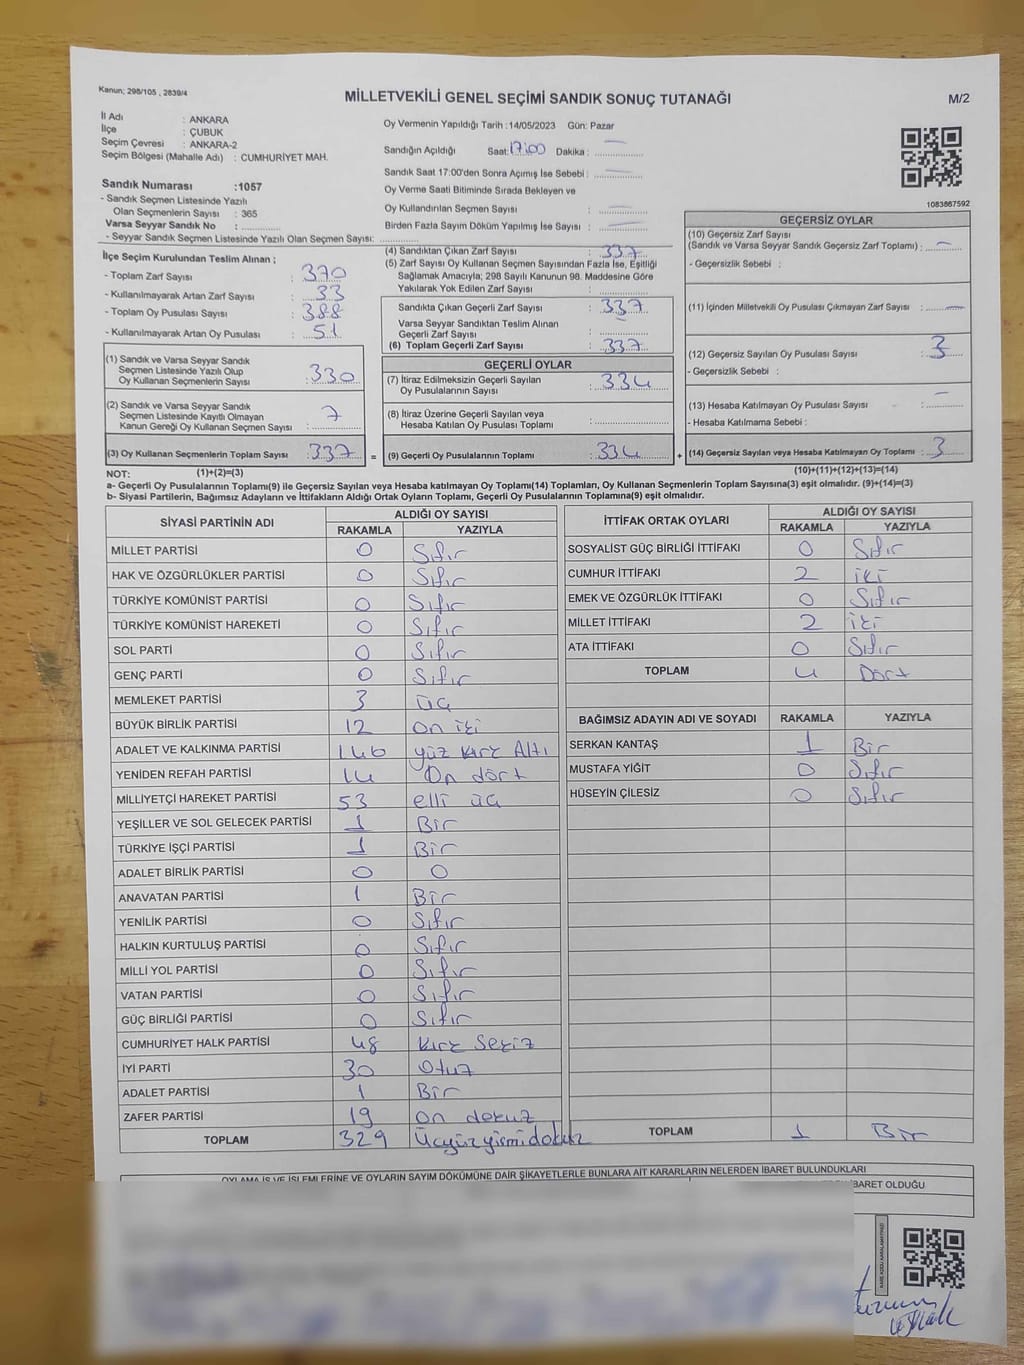 Kanun; 298/105 , 2839/4
MİLLETVEKİLİ GENEL SEÇİMİ SANDIK SONUÇ TUTANAĞI
M/2
İl Adı : ANKARA
İlçe : ÇUBUK
Seçim Çevresi : ANKARA-2
Seçim Bölgesi (Mahalle Adı) : CUMHURİYET MAH.
Sandık Numarası :1057
- Sandık Seçmen Listesinde Yazılı
Olan Seçmenlerin Sayısı : 365
Varsa Seyyar Sandık No :
- Seyyar Sandık Seçmen Listesinde Yazılı Olan Seçmen Sayısı:
Oy Vermenin Yapıldığı Tarih :14/05/2023 Gün: Pazar
Sandığın Açıldığı Saat: 17:00 Dakika :
Sandık Saat 17:00'den Sonra Açımış İse Sebebi :
Oy Verme Saati Bitiminde Sırada Bekleyen ve
Oy Kullandırılan Seçmen Sayısı :
Birden Fazla Sayım Döküm Yapılmış İse Sayısı :
1083867592
İlçe Seçim Kurulundan Teslim Alınan ;
- Toplam Zarf Sayısı : 370
- Kullanılmayarak Artan Zarf Sayısı : 33
- Toplam Oy Pusulası Sayısı : 388
- Kullanılmayarak Artan Oy Pusulası : 51
(1) Sandık ve Varsa Seyyar Sandık
Seçmen Listesinde Yazılı Olup
Oy Kullanan Seçmenlerin Sayısı : 330
(2) Sandık ve Varsa Seyyar Sandık
Seçmen Listesinde Kayıtlı Olmayan
Kanun Gereği Oy Kullanan Seçmen Sayısı : 7
(3) Oy Kullanan Seçmenlerin Toplam Sayısı : 337
(4) Sandıktan Çıkan Zarf Sayısı : 337
(5) Zarf Sayısı Oy Kullanan Seçmen Sayısından Fazla İse, Eşitliği
Sağlamak Amacıyla; 298 Sayılı Kanunun 98. Maddesine Göre
Yakılarak Yok Edilen Zarf Sayısı :
Sandıkta Çıkan Geçerli Zarf Sayısı : 337
Varsa Seyyar Sandıktan Teslim Alınan
Geçerli Zarf Sayısı :
(6) Toplam Geçerli Zarf Sayısı : 337
GEÇERLİ OYLAR
(7) İtiraz Edilmeksizin Geçerli Sayılan
Oy Pusulalarının Sayısı : 334
(8) İtiraz Üzerine Geçerli Sayılan veya
Hesaba Katılan Oy Pusulası Toplamı :
= (9) Geçerli Oy Pusulalarının Toplamı : 334 +
GEÇERSİZ OYLAR
(10) Geçersiz Zarf Sayısı
(Sandık ve Varsa Seyyar Sandık Geçersiz Zarf Toplamı) : –
- Geçersizlik Sebebi :
(11) İçinden Milletvekili Oy Pusulası Çıkmayan Zarf Sayısı : –
(12) Geçersiz Sayılan Oy Pusulası Sayısı : 3
- Geçersizlik Sebebi :
(13) Hesaba Katılmayan Oy Pusulası Sayısı : –
- Hesaba Katılmama Sebebi :
(14) Geçersiz Sayılan veya Hesaba Katılmayan Oy Toplamı : 3
NOT: (1)+(2)=(3)
(10)+(11)+(12)+(13)=(14)
a- Geçerli Oy Pusulalarının Toplamı(9) ile Geçersiz Sayılan veya Hesaba katılmayan Oy Toplamı(14) Toplamları, Oy Kullanan Seçmenlerin Toplam Sayısına(3) eşit olmalıdır. (9)+(14)=(3)
b- Siyasi Partilerin, Bağımsız Adayların ve İttifakların Aldığı Ortak Oyların Toplamı, Geçerli Oy Pusulalarının Toplamına(9) eşit olmalıdır.
SİYASİ PARTİNİN ADI ALDIĞI OY SAYISI
RAKAMLA YAZIYLA
MİLLET PARTİSİ 0 Sıfır
HAK VE ÖZGÜRLÜKLER PARTİSİ 0 Sıfır
TÜRKİYE KOMÜNİST PARTİSİ 0 Sıfır
TÜRKİYE KOMÜNİST HAREKETİ 0 Sıfır
SOL PARTİ 0 Sıfır
GENÇ PARTİ 0 Sıfır
MEMLEKET PARTİSİ 3 üç
BÜYÜK BİRLİK PARTİSİ 12 on iki
ADALET VE KALKINMA PARTİSİ 146 yüz kırk Altı
YENİDEN REFAH PARTİSİ 14 On dört
MİLLİYETÇİ HAREKET PARTİSİ 53 elli üç
YEŞİLLER VE SOL GELECEK PARTİSİ 1 Bir
TÜRKİYE İŞÇİ PARTİSİ 1 Bir
ADALET BİRLİK PARTİSİ 0 0
ANAVATAN PARTİSİ 1 Bir
YENİLİK PARTİSİ 0 Sıfır
HALKIN KURTULUŞ PARTİSİ 0 Sıfır
MİLLİ YOL PARTİSİ 0 Sıfır
VATAN PARTİSİ 0 Sıfır
GÜÇ BİRLİĞİ PARTİSİ 0 Sıfır
CUMHURİYET HALK PARTİSİ 48 kırk sekiz
İYİ PARTİ 30 Otuz
ADALET PARTİSİ 1 Bir
ZAFER PARTİSİ 19 on dokuz
TOPLAM 329 Üçyüzyirmidokuz
İTTİFAK ORTAK OYLARI ALDIĞI OY SAYISI
RAKAMLA YAZIYLA
SOSYALİST GÜÇ BİRLİĞİ İTTİFAKI 0 Sıfır
CUMHUR İTTİFAKI 2 iki
EMEK VE ÖZGÜRLÜK İTTİFAKI 0 Sıfır
MİLLET İTTİFAKI 2 iki
ATA İTTİFAKI 0 Sıfır
TOPLAM 4 Dört
BAĞIMSIZ ADAYIN ADI VE SOYADI RAKAMLA YAZIYLA
SERKAN KANTAŞ 1 Bir
MUSTAFA YİĞİT 0 Sıfır
HÜSEYİN ÇİLESİZ 0 Sıfır
TOPLAM 1 Bir
OYLAMA İŞ VE İŞLEMLERİNE VE OYLARIN SAYIM DÖKÜMÜNE DAİR ŞİKAYETLERLE BUNLARA AİT KARARLARIN NELERDEN İBARET BULUNDUKLARI
İBARET OLDUĞU